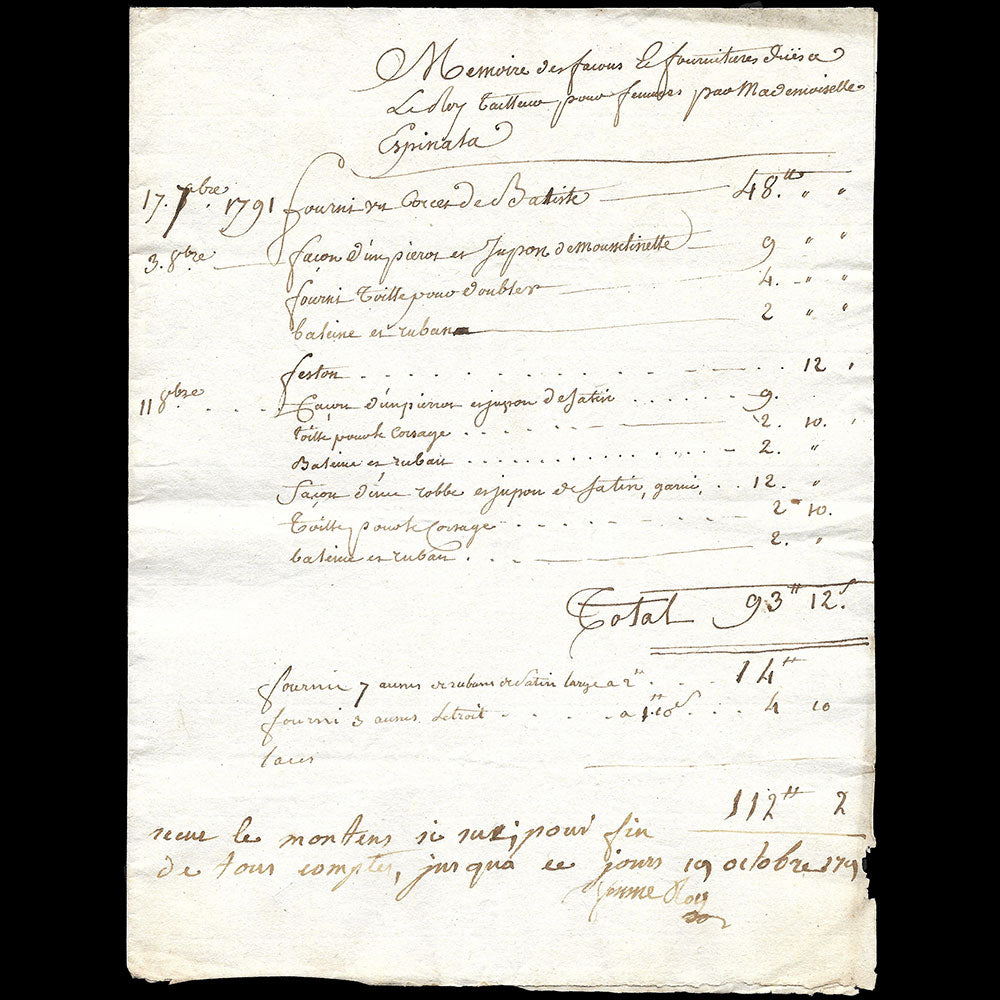 Memoire des facons & fournitures düës a
Le Roy Tailleur pour femmes par Mademoiselle
Espinata
17. 7bre. 1791 fourni un Corcet de Battiste 48.tt " "
3. 8bre façon d'un pierot et Jupon de Mousselinette 9 " "
fourni Toille pour doubler 4. " "
baleine et ruban 2 " "
feston 12 "
11 8bre façon d'un pierrot et jupon de Satin 9.
Toille pour le Corsage 2. 10.
Baleine et ruban 2. "
façon d'une robbe et jupon de Satin, garni, 12. "
Toille pour le Corsage 2 10.
baleine et ruban 2. "
Total 93tt 12s.
fournie 7 aunes de rubans de Satin large a 2tt 14tt
fourni 3 aunes detroit a 1tt 10s 4 10
lacet
112tt 2
recue le montens si sur, pour fin
de tous comptes, jusqua ce jours 19 octobre 1791
femme Roy